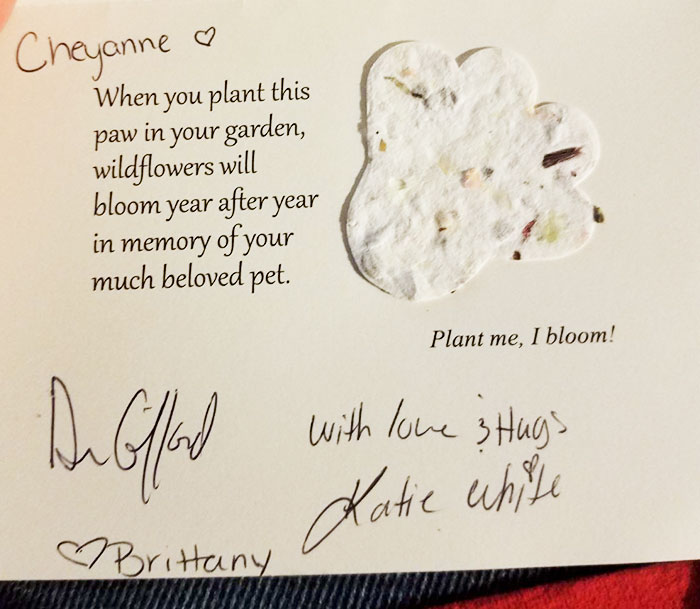 Cheyanne ♡
When you plant this
paw in your garden,
wildflowers will
bloom year after year
in memory of your
much beloved pet.
Plant me, I bloom!
Dr Gifford
with love & Hugs
Katie White
♡ Brittany